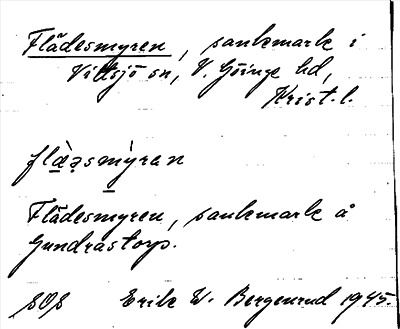 Flädesmyren, sankmark i
Vittsjö sn, V. Göinge hd,
Krist. l.
flæ̀əsmỳran
Flädesmyren, sankmark å
Gundrastorp.
SOS Erik W. Bergenrud 1945.